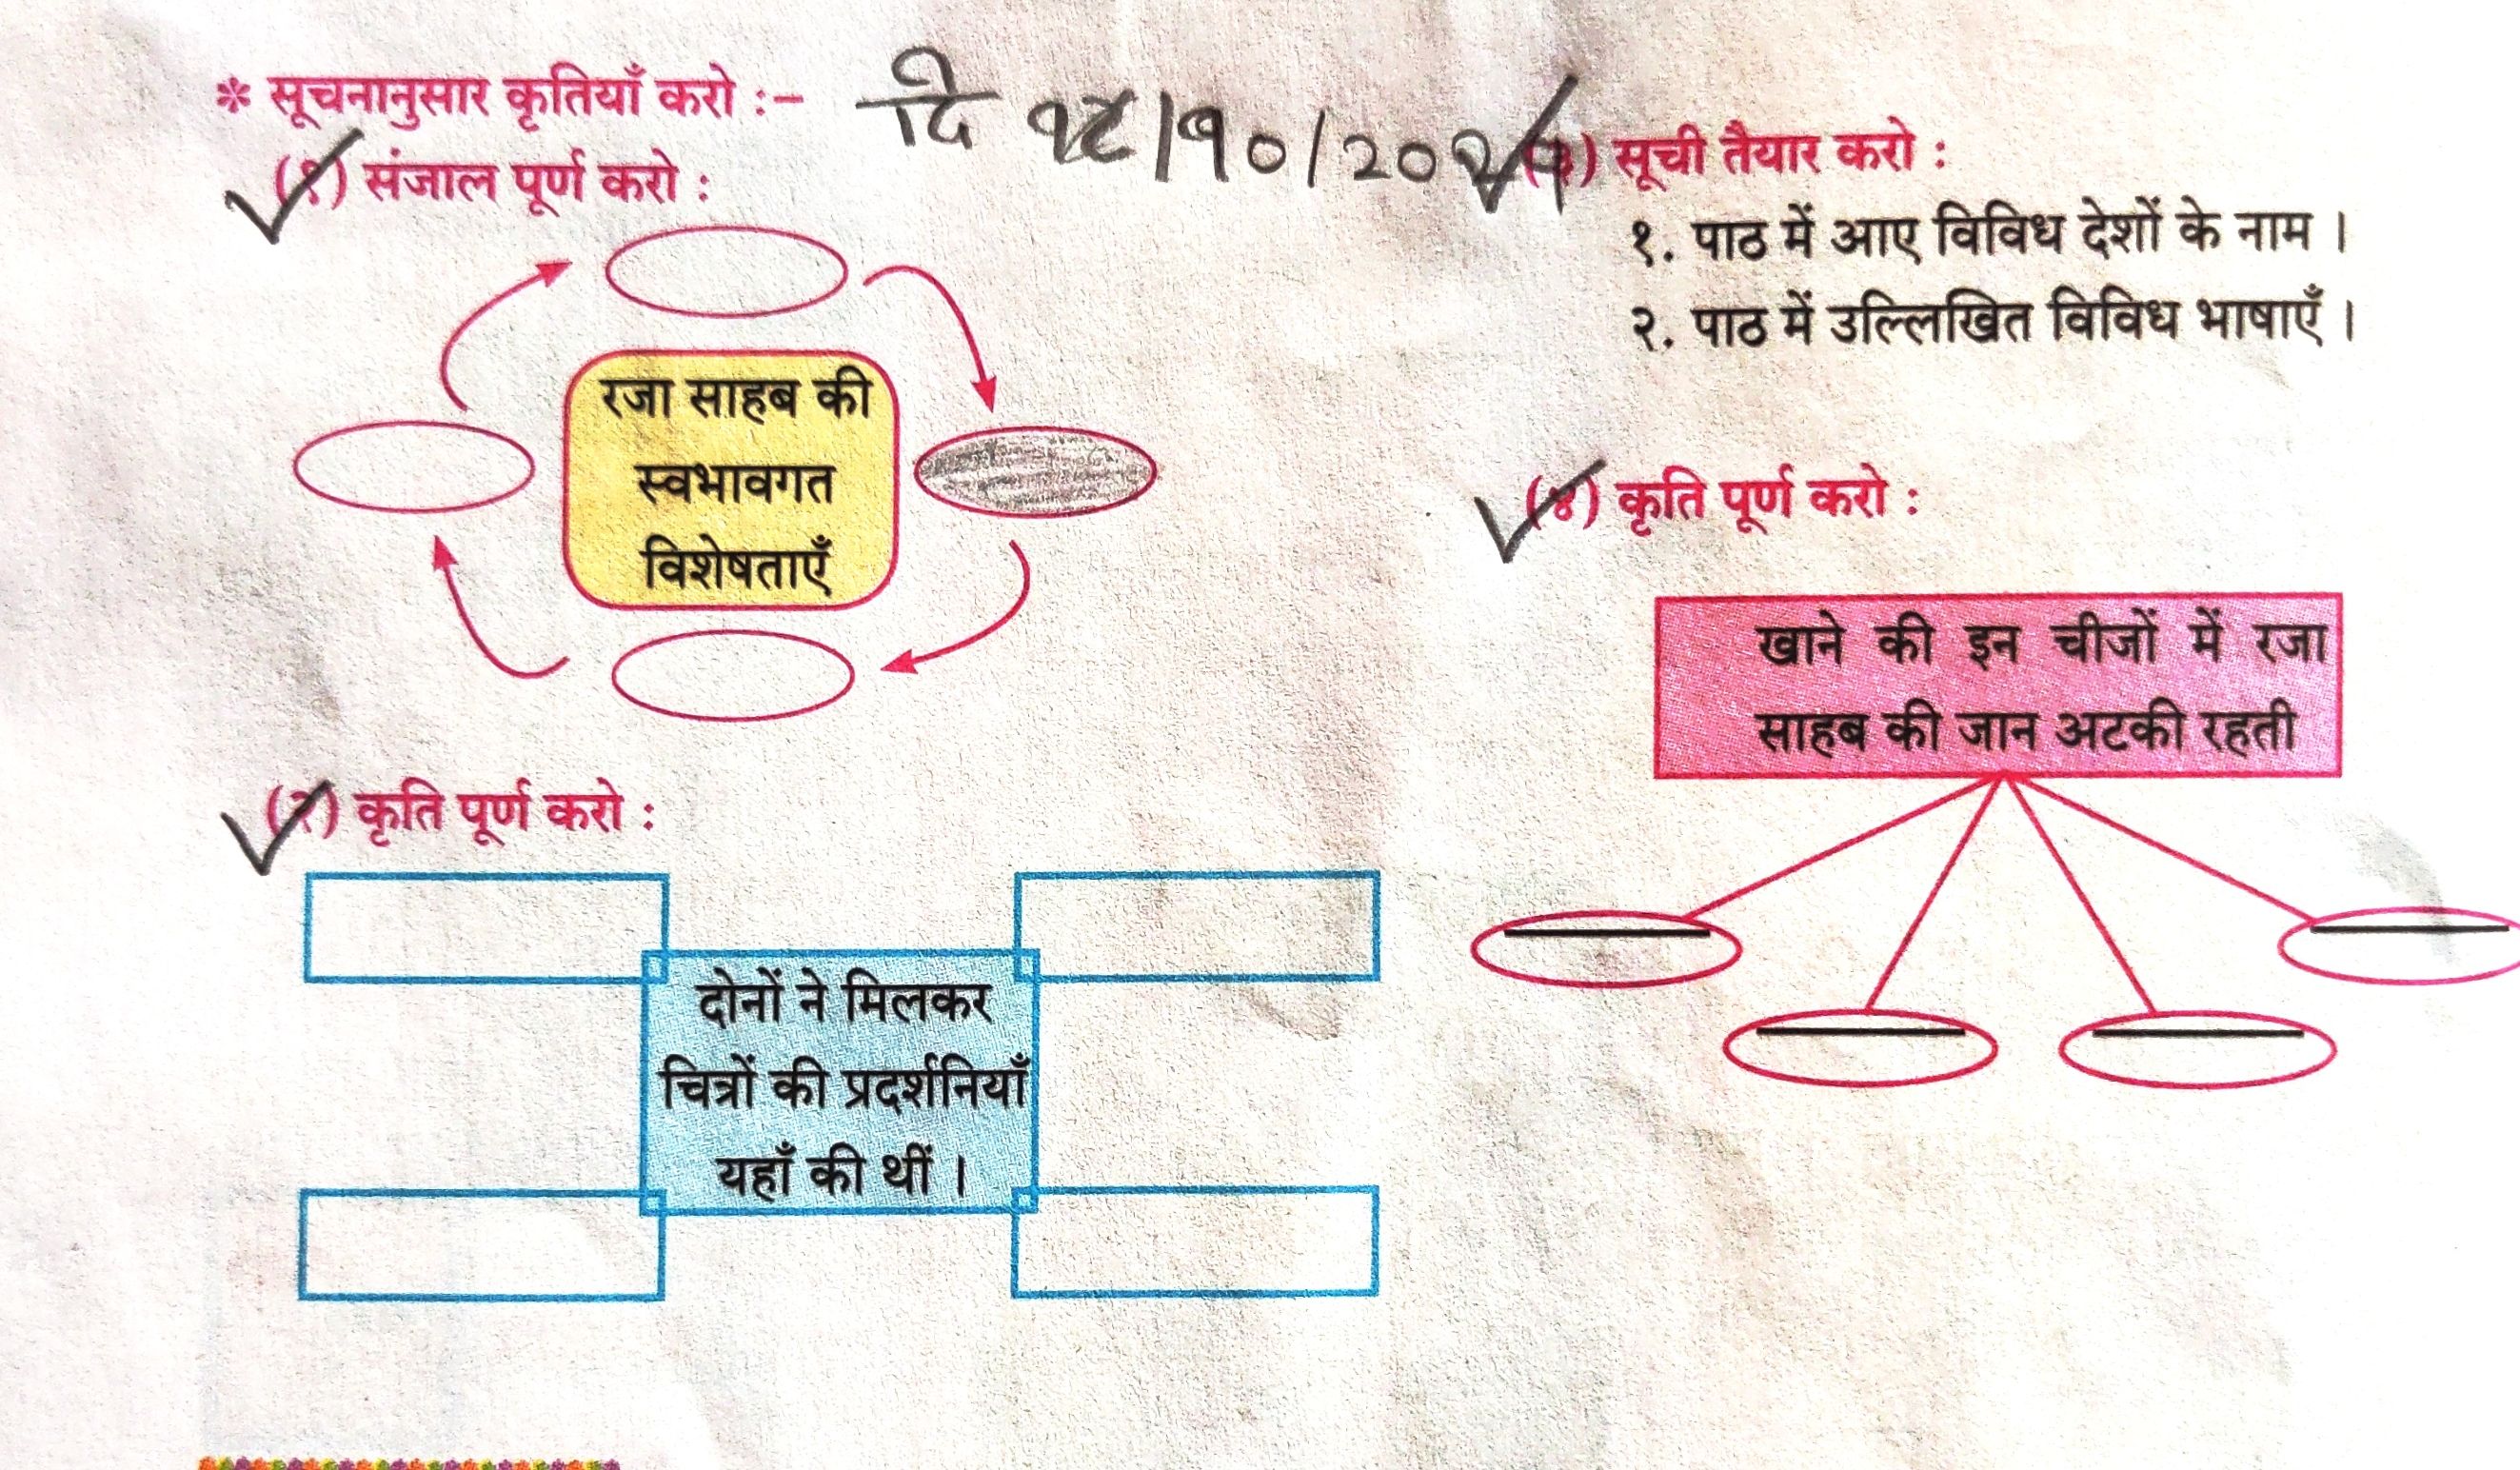 * सूचनानुसार कृतियाँ करो :–
दि १८/१०/२०२५
(१) संजाल पूर्ण करो :
रजा साहब की
स्वभावगत
विशेषताएँ
(२) कृति पूर्ण करो :
दोनों ने मिलकर
चित्रों की प्रदर्शनियाँ
यहाँ की थीं ।
(३) सूची तैयार करो :
१. पाठ में आए विविध देशों के नाम ।
२. पाठ में उल्लिखित विविध भाषाएँ ।
(४) कृति पूर्ण करो :
खाने की इन चीजों में रजा
साहब की जान अटकी रहती